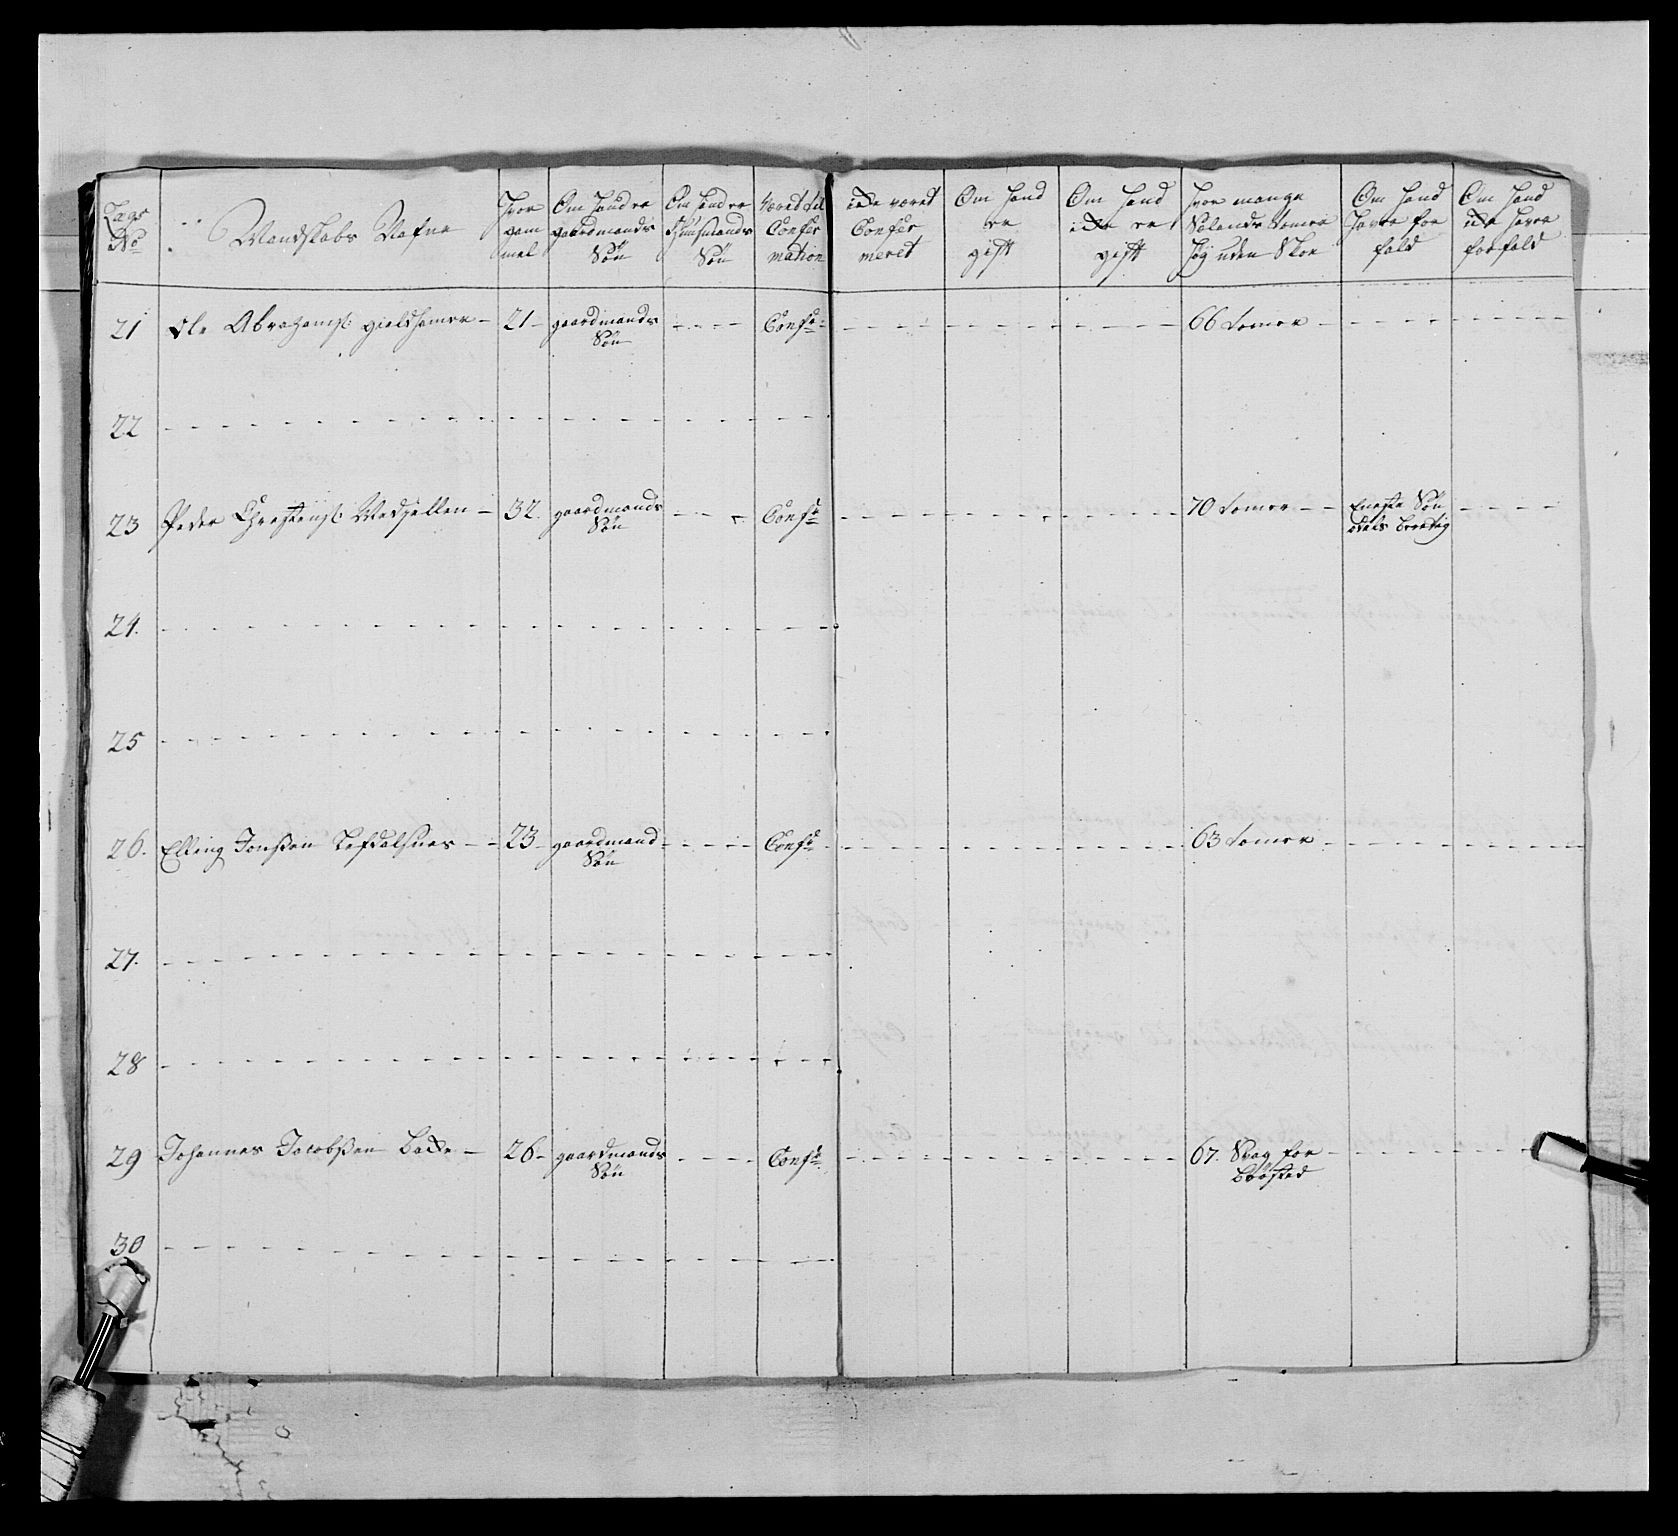 Lægs No | Mandskabs Nafne | Hvor gam mel | Om hand er gaardmands Søn | Om hand er Huusmands Søn | Været til Confer mation | ikke været Confer meret | Om hand er gift | Om hand ikke er gift | Hvor mange Selands tomer høj uden Skoe | Om hand haver for fald | Om hand ikke haver forfald
21 Ole Abrahams: gieldhamer - 21 - gaardmands Søn - - - - Conf: - - - - 66 tomer - - - -
22 - - - -
23 Peder Chrestens: Medhellen - 32. gaardmands Søn - - - Conf: - - - - 70 tomer - - Eneste Søn odels beretig - - - -
24. - - - -
25 - - - -
26. Elling Jonssen Lefdalsnes - - 23 - gaardmand Søn - - - - Conf: - - - - 63 tomer - - - -
27. - - - -
28 - - - -
29 Johannes Jacobssen Bakke - 26 - gaardmands Søn - - - - Conf: - - - - 67. Svag for Brøsted - - - -
30 - - - -